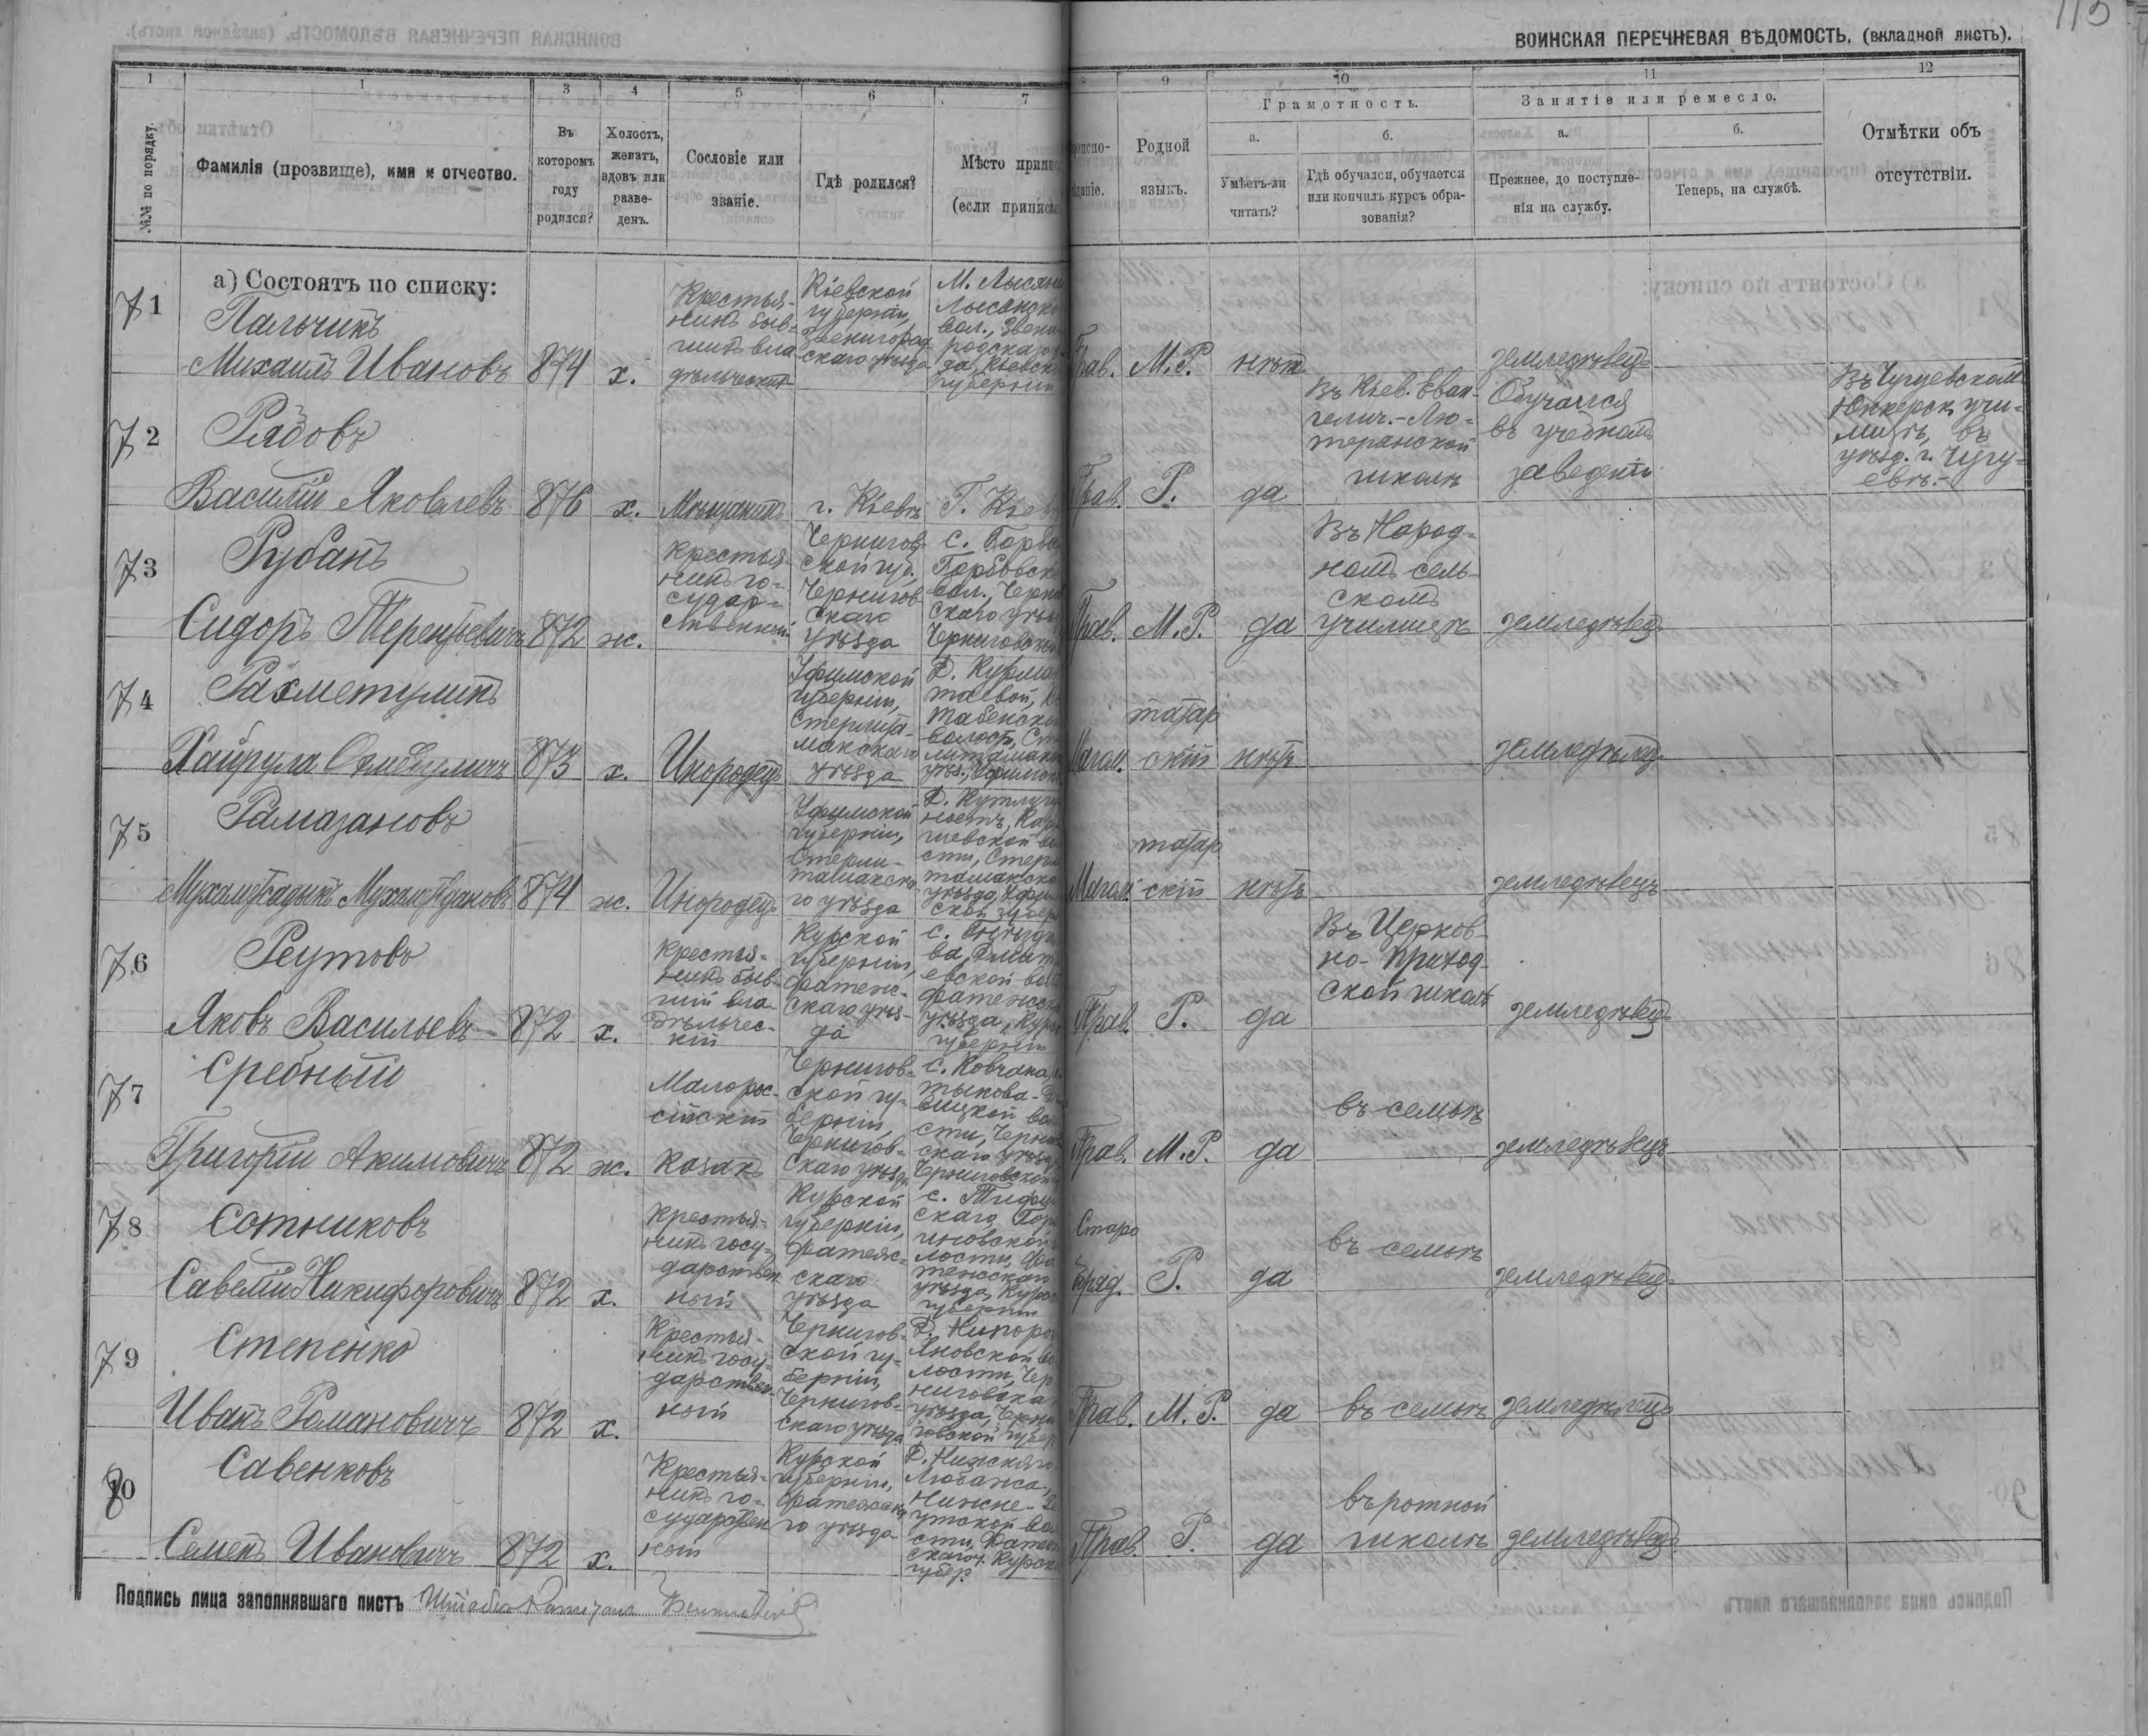 115
ВОИНСКАЯ ПЕРЕЧНЕВАЯ ВѢДОМОСТЬ, (вкладной листъ).
1 1 3 4 5 6 7 8 9 10 11 12
№№ по порядку.
Фамилія (прозвище), имя и отчество.
Въ которомъ году родился?
Холостъ, женатъ, вдовъ или разведенъ.
Сословіе или званіе.
Гдѣ родился?
Мѣсто припис
(если приписа
Родной языкъ.
Грамотность.
а. Умѣетъ-ли читать?
б. Гдѣ обучался, обучается или кончилъ курсъ образованія?
Занятіе или ремесло.
а. Прежнее, до поступленія на службу.
б. Теперь, на службѣ.
Отмѣтки объ отсутствіи.
а) Состоятъ по списку:
71 Пальчикъ
Михаилъ Ивановъ 874 х.
Крестья-
нинъ быв-
шихъ вла
дѣльческихъ
Кіевской
губерніи,
Звенигород
скаго уѣзда
М. Лысян
Лысянск
вол., Звени
родскаго у
да, Кіевск
губерніи
Прав. М.Р. нѣтъ земледѣлецъ
72 Рядовъ
Василій Яковлевъ 876 х. Мѣщанинъ г. Кіевъ Г. Кіев
Прав. Р. да
Въ Кіев. Еван-
гелич.-Лю-
теранской
школѣ
Обучался
въ учебномъ
заведеніи
Въ Чугуевском
Юнкерск. учи-
лищѣ, въ
уѣзд. г. Чугу-
евѣ.-
73 Рубанъ
Сидоръ Терентьевичъ 872 ж.
Крестья-
нинъ го-
судар-
ственный
Чернигов-
ской губ.,
Чернигов-
скаго
уѣзда
вол., Черни
скаго уѣз
Черниговской
Прав. М.Р. да
Въ Народ-
номъ сель-
скомъ
училищѣ
земледѣлецъ
74 Рахметулинъ
Хайрула 873 х. Инородецъ
Уфимской
губерніи,
Стерлита-
макскаго
уѣзда
Д. Курман
таевой,
Табенской
волост, Ст
литамакс
уѣз., Уфимск
Магом. татар
скій нѣтъ земледѣлецъ
75 Рамазановъ
874 ж. Инородецъ
Уфимской
губерніи,
Стерли-
тамакска
го уѣзда
сти, Стерл
тамакска
уѣзда, Уфим
ской губер
Магом. татар
скій нѣтъ земледѣлецъ
76 Реутовъ
Яковъ Васильевъ 872 х.
Крестья-
нинъ быв-
шій вла-
дѣльчес-
кій
Курской
губерніи,
Фатеж-
скаго уѣз-
да
евской вол
Фатежск
уѣзда, Курс
губерніи
Прав. Р. да
Въ Церков-
но-приход-
ской школѣ
земледѣлецъ
77 Сребный
Григорій Акимовичъ 872 ж.
Малорос-
сійскій
Козакъ
Чернигов-
ской гу-
берніи,
Чернигов-
скаго уѣзда
с. Ковчина,
сти, Черни
скаго уѣзд
Черниговской
Прав. М.Р. да въ семьѣ земледѣлецъ
78 Сотниковъ
Савелій Никифоровичъ 872 х.
Крестья-
нинъ госу-
дарствен
ный
Курской
губерніи,
Фатеж-
скаго
уѣзда
скаго,
лости, Фа
тежскаго
уѣзда, Курс
губерніи
Старо
обряд. Р. да въ семьѣ земледѣлецъ
79 Степенко
Иванъ Романовичъ 872 х.
Крестья-
нинъ госу-
дарствен-
ный
Чернигов-
ской гу-
берніи,
Чернигов-
скаго уѣзда
Яновской во
лости, Чер
ниговска
уѣзда, Черни
говской губер
Прав. М.Р. да въ семьѣ земледѣлецъ
80 Савенковъ
Семенъ Ивановичъ 872 х.
Крестья-
нинъ го-
сударствен
ный
Курской
губерніи,
Фатежска
го уѣзда
Д. Нижняго
Любажа,
Нижне-Ре
утской вол
сти, Фатеж
скаго у. Курск
губер.
Прав. Р. да въ ротной
школѣ земледѣлецъ
Подпись лица заполнявшаго листъ Штабсъ-Капитанъ